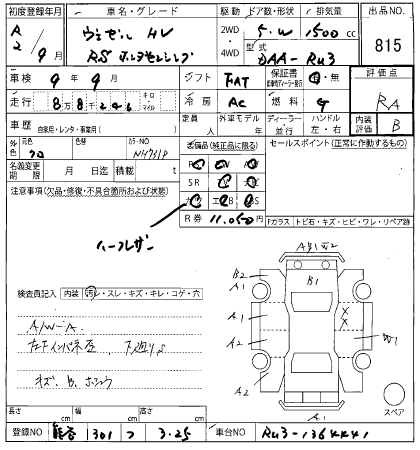 初度登録年月 車名・グレード 駆動 ドア数・形状 排気量 出品NO.
R2/9月 ヴェゼル HV 2WD・4WD 5.W 1500cc 815
RS ホンダセンシング 型式 DAA-RU3
車検 9年9月 シフト FAT 保証書 有・無 評価点
走行 8万8千246 キロ・マイル 冷房 AC 燃料 G RA
車歴 自家用・レンタ・事業用( ) 定員 人 外車モデル 年 ディーラー・並行 ハンドル 左・右 内装評価 B
外色 元色 クロ 色替 カラーNO NH731P 装備品(純正品に限る) セールスポイント(正常に作動するもの)
名義変更期限 月 日迄 積載 t
SR
注意事項(欠品・修復・不具合箇所および状態)
R券 11,050
Fガラス トビ石・キズ・ヒビ・ワレ・リペア跡
ハーフレザー
B2 B1
A1
検査員記入 内装 汚レ・スレ・キズ・キレ・コゲ・穴
A1 W1
A/W-A. A2
下廻りS
キズ、B、ホシュウ A2
A1 スペア
長さ cm 幅 cm 高さ cm
登録NO 熊谷 301 つ 3-25 車台NO RU3-1364441